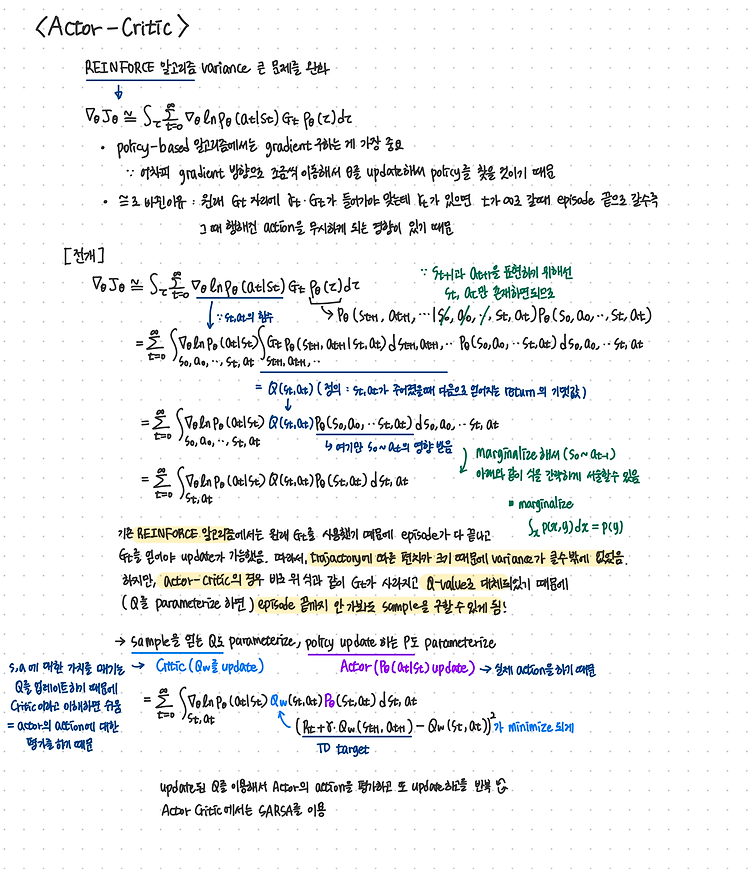 <Actor-Critic>
REINFORCE 알고리즘 variance 큰 문제를 완화
∇θJθ ≅ ∫τ Σ(t=0→∞) ∇θ ln Pθ(at|st) Gt Pθ(τ)dτ
• policy-based 알고리즘에서는 gradient 구하는 게 가장 중요
∵ 어차피 gradient 방향으로 조금씩 이동해서 θ를 update해서 policy를 찾을 것이기 때문
• ≅로 바뀐이유 : 원래 Gt 자리에 γt·Gt가 들어가야 맞는데 γt가 있으면 t가 ∞로 갈때 episode 끝으로 갈수록
그 때 행해진 action을 무시하게 되는 경향이 있기 때문
[전개]
∇θJθ ≅ ∫τ Σ(t=0→∞) ∇θ ln Pθ(at|st) Gt Pθ(τ)dτ
∵ st+1과 at+1을 표현하기 위해선
st, at만 존재하면되므로
∵ st,at의 함수
→ Pθ(st+1, at+1, ⋯|s0, a0, ⋯, st, at)Pθ(s0, a0, ⋯, st, at)
= Σ(t=0→∞) ∫s0,a0,⋯,st,at ∇θ ln Pθ(at|st) ∫st+1,at+1,⋯ Gt Pθ(st+1, at+1|st, at) dst+1, at+1, ⋯ Pθ(s0, a0, ⋯st, at) ds0, a0, ⋯ st, at
= Q(st,at) (정의 : st,at가 주어졌을때 다음으로 얻어지는 return의 기댓값)
= Σ(t=0→∞) ∫s0,a0,⋯,st,at ∇θ ln Pθ(at|st) Q(st,at) Pθ(s0,a0,⋯st,at) ds0,a0,⋯st,at
↳ 여기만 s0~at의 영향 받음
marginalize 해서 (s0~at-1)
아래와 같이 식을 간략하게 서술할수 있음
= Σ(t=0→∞) ∫st,at ∇θ ln Pθ(at|st) Q(st,at)Pθ(st,at) dst,at
▪ marginalize
∫x p(x,y)dx = p(y)
기존 REINFORCE 알고리즘에서는 원래 Gt를 사용했기 때문에 episode가 다 끝나고
Gt를 얻어야 update가 가능했음. 따라서, trajactory에 따른 편차가 크기 때문에 variance가 클수밖에 없었음.
하지만, actor-critic의 경우 바로 위 식과 같이 Gt가 사라지고 Q-value로 대체되었기 때문에
(Q를 parameterize 하면) episode 끝까지 안 가봐도 sample을 구할 수 있게 됨!
→ sample을 얻는 Q도 parameterize, policy update 하는 P도 parameterize
s,a에 대한 가치를 매기는 → Critic (Qw를 update)
Actor (Pθ(at|st) update) → 실제 action을 하기 때문
Q를 업데이트하기 때문에
Critic이라고 이해하면 쉬움
= actor의 action에 대한
평가를 하기 때문
= Σ(t=0→∞) ∫st,at ∇θ ln Pθ(at|st) Qw(st,at) Pθ(st,at) dst,at
(Rt + γ·Qw(st+1, at+1) - Qw(st, at))² 가 minimize 되게
TD target
update된 Q를 이용해서 Actor의 action을 평가하고 또 update하고를 반복
Actor Critic에서는 SARSA를 이용